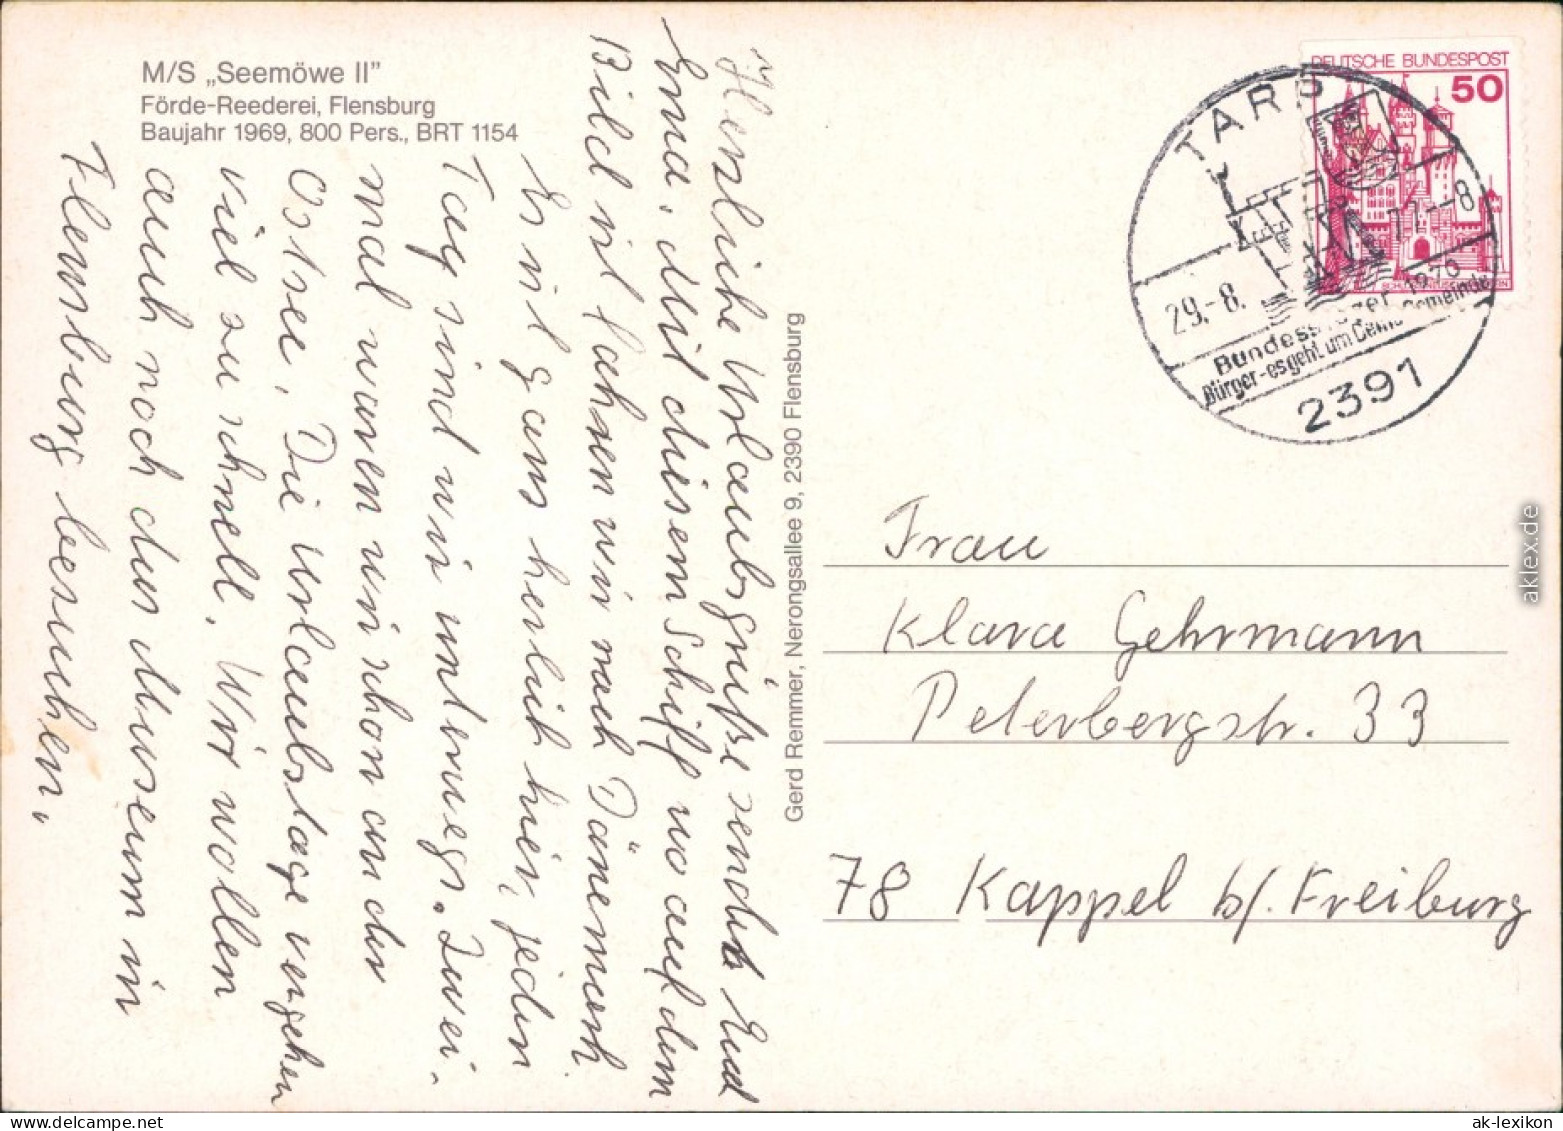 M/S „Seemöwe II”
Förde-Reederei, Flensburg
Baujahr 1969, 800 Pers., BRT 1154
Herzliche Urlaubsgrüße sendet Euch
Erna. Mit diesem Schiff wo auf dem
Bild ist fahren wir nach Dänemark
Es ist ganz herlich hier, jeden
Tag sind wir unterwegs. Zwei-
mal waren wir schon an der
Ostsee. Die Urlaubstage vergehen
viel zu schnell. Wir wollen
auch noch das Museum in
Flensburg besuchen.
Gerd Remmer, Nerongsallee 9, 2390 Flensburg
DEUTSCHE BUNDESPOST
50
TARP
29.-8. 77-8
Bundessieger 1976
Bürger-es geht um Deine Gemeinde
2391
Frau
Klara Gehrmann
Peterbergstr. 33
78 Kappel b/. Freiburg
aklex.de
ak-lexikon